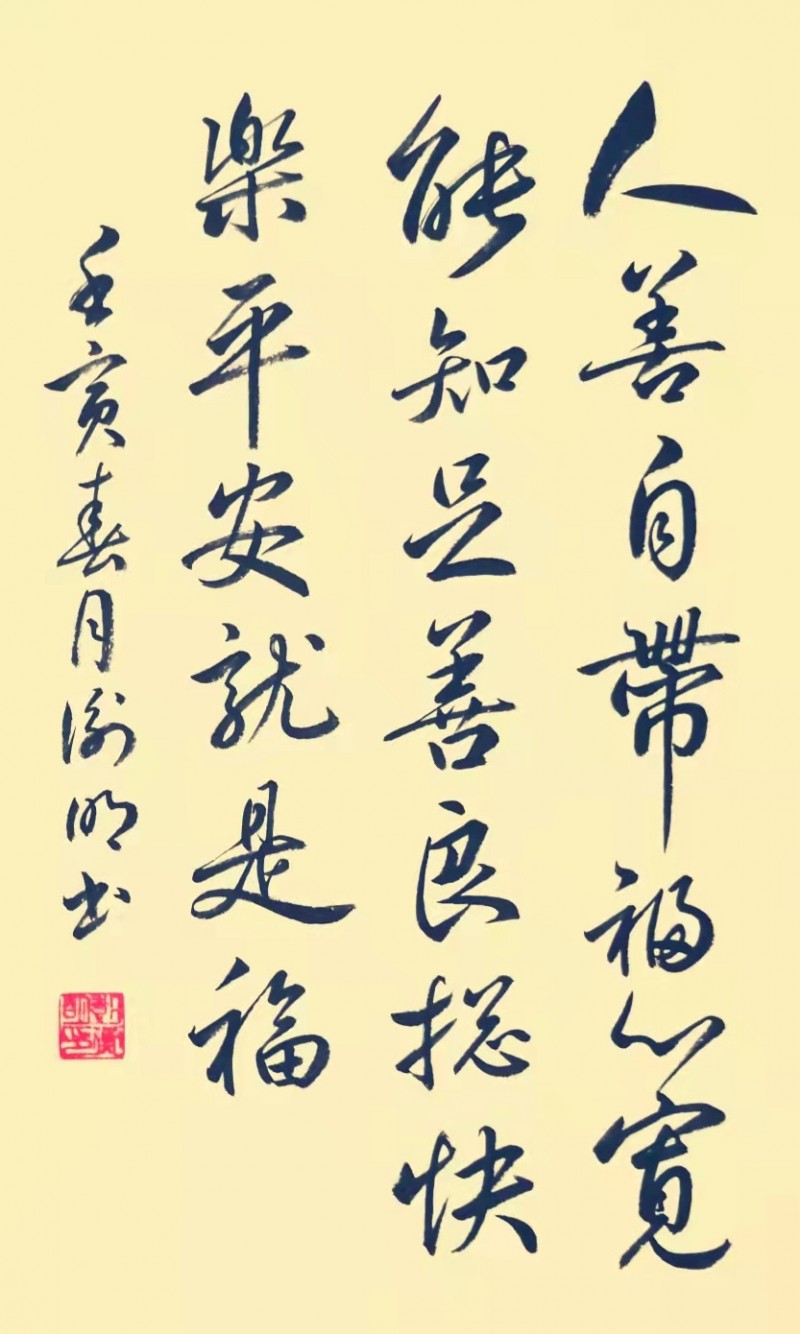 人善自帶福心寬
能知足善良捴快
楽平安就是福
壬寅春月明书